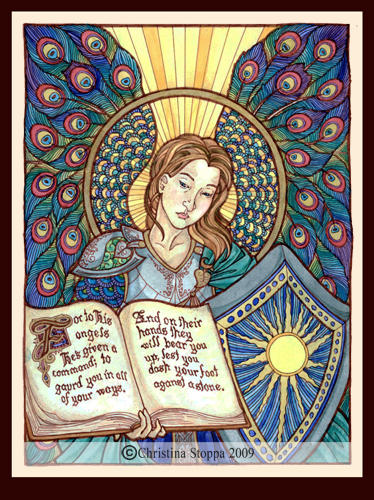 For to His
angels
He's given a
command; to
gaurd you in all
of your ways.
And on their
hands they
will bear you
up, lest you
dash your foot
against a stone.
©Christina Stoppa 2009